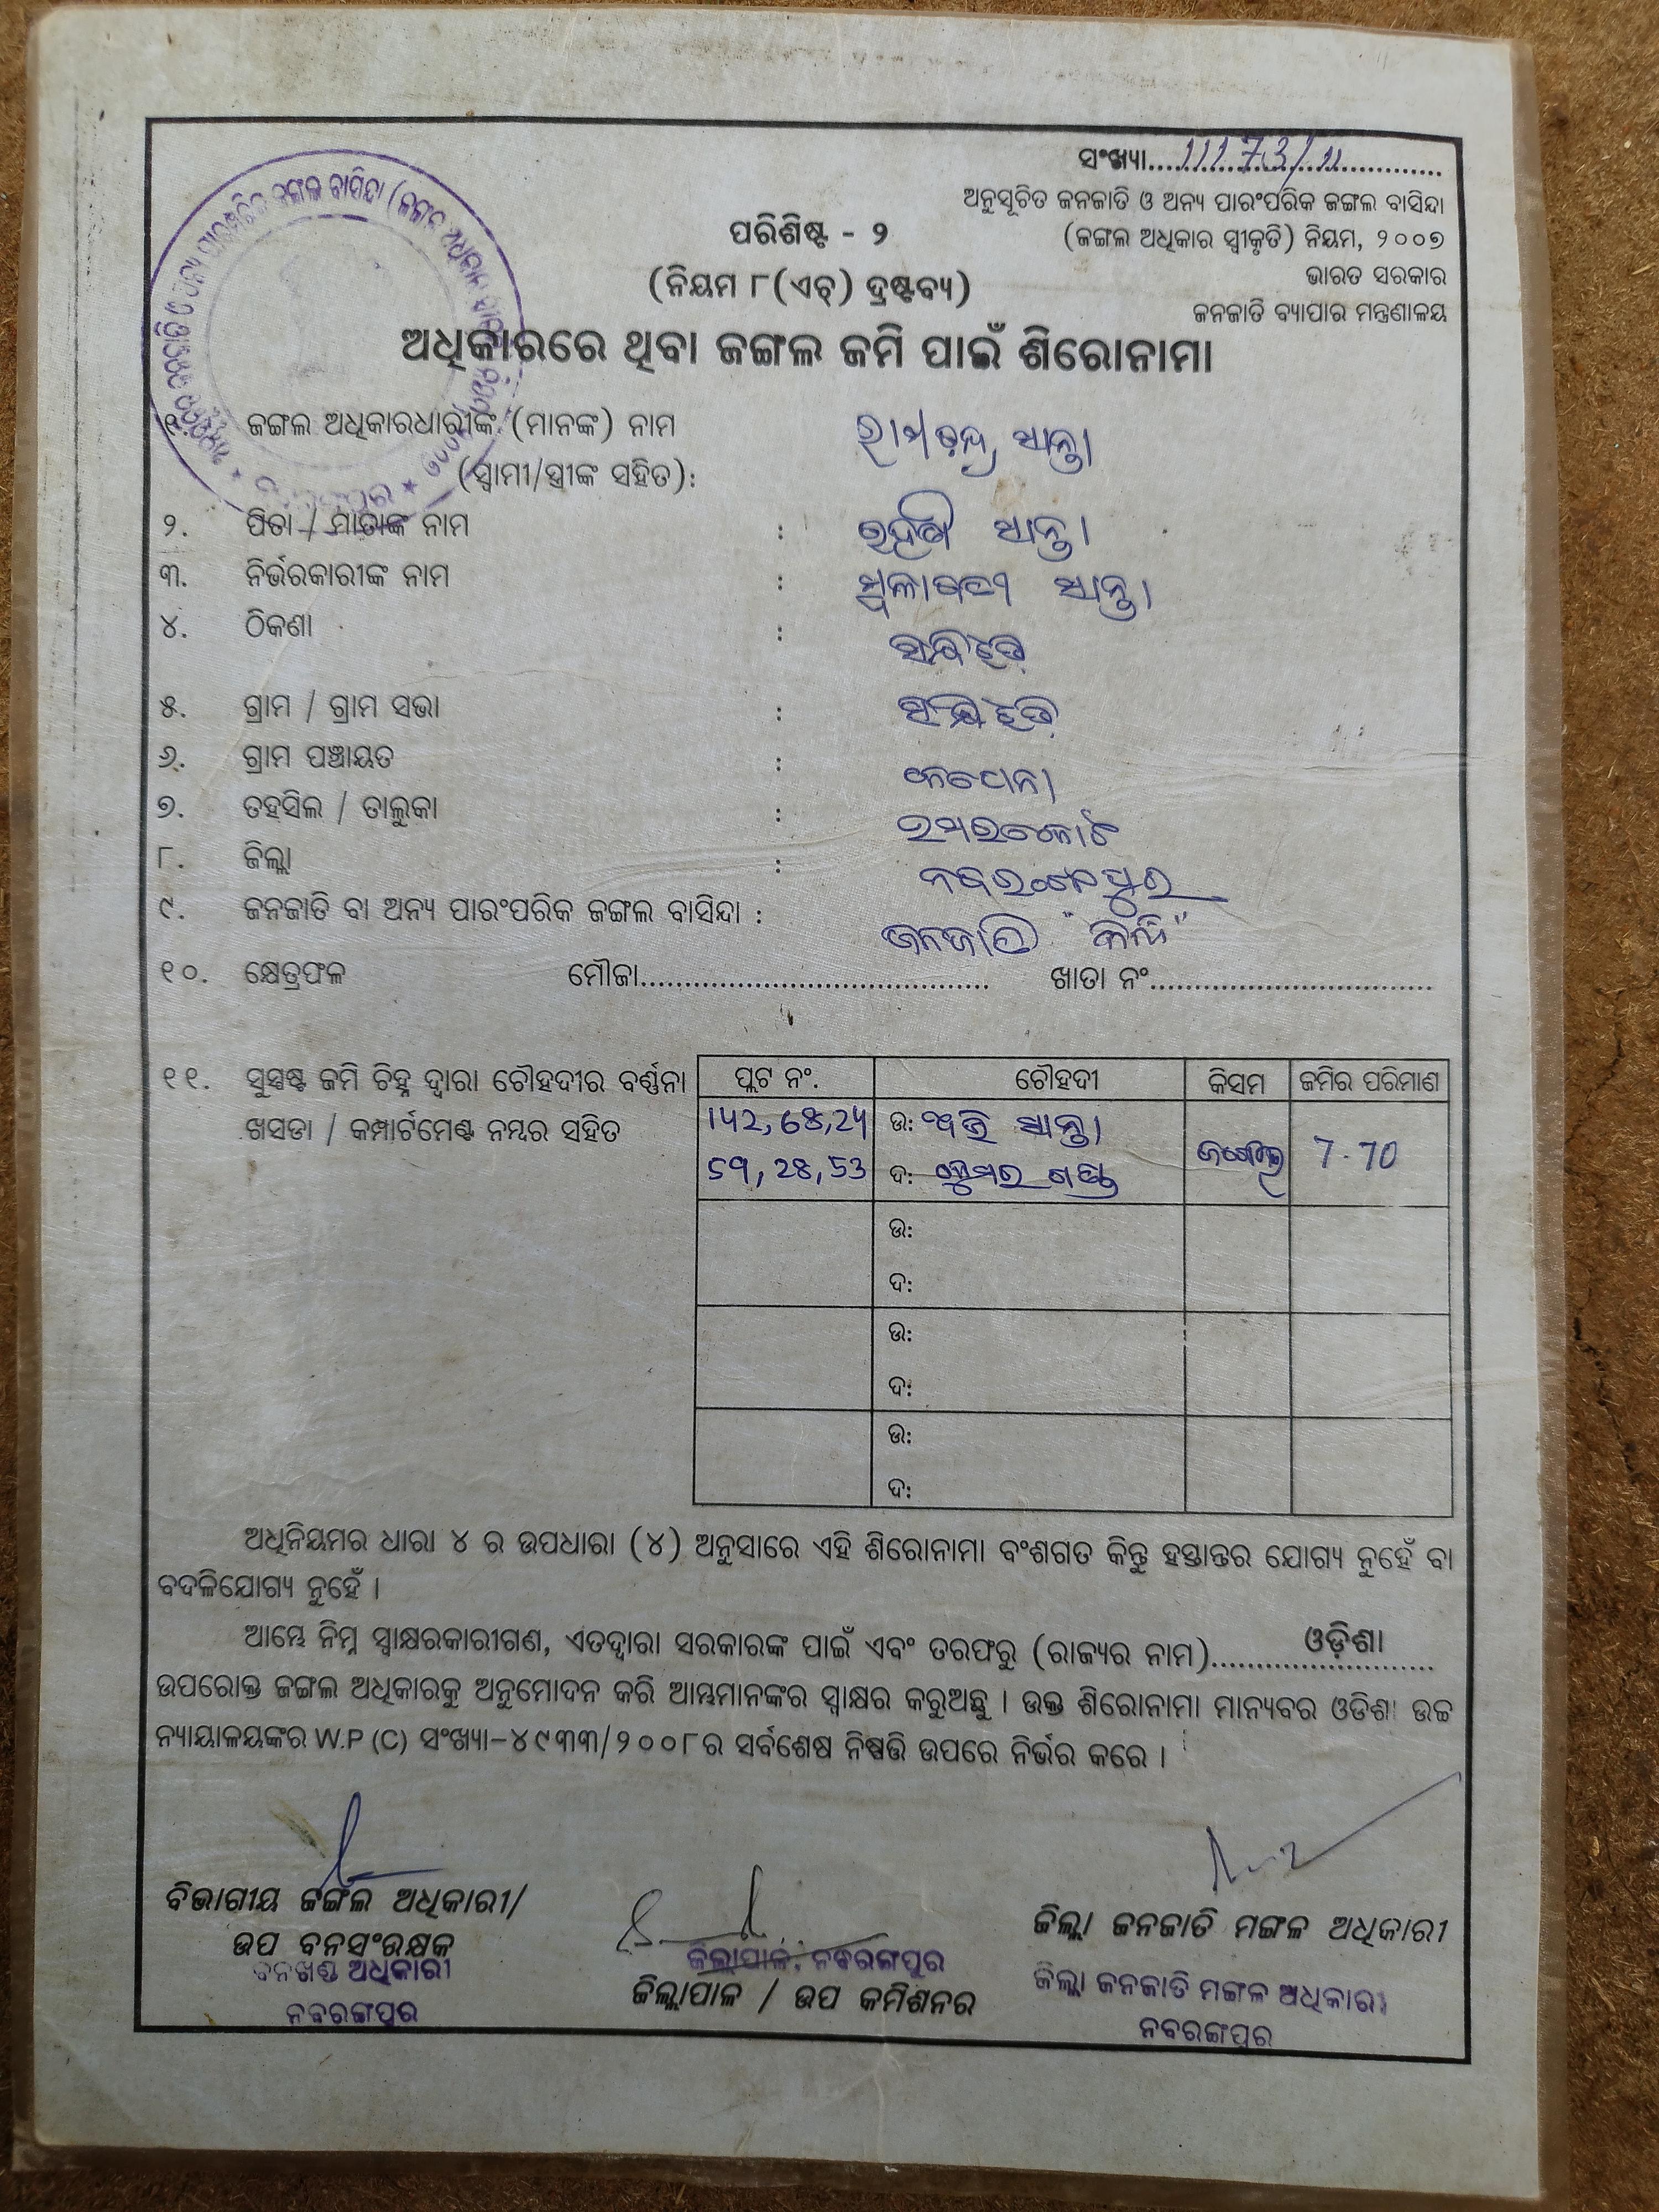 ସଂଖ୍ୟା....11173/11....
ଅନୁସୂଚିତ ଜନଜାତି ଓ ଅନ୍ୟ ପାରଂପରିକ ଜଙ୍ଗଲ ବାସିନ୍ଦା
(ଜଙ୍ଗଲ ଅଧିକାର ସ୍ୱୀକୃତି) ନିୟମ, ୨୦୦୭
ଭାରତ ସରକାର
ଜନଜାତି ବ୍ୟାପାର ମନ୍ତ୍ରଣାଳୟ
ପରିଶିଷ୍ଟ - ୨
(ନିୟମ ୮(ଏଚ୍) ଦ୍ରଷ୍ଟବ୍ୟ)
ଅଧିକାରରେ ଥିବା ଜଙ୍ଗଲ ଜମି ପାଇଁ ଶିରୋନାମା
୧. ଜଙ୍ଗଲ ଅଧିକାରଧାରୀଙ୍କ (ମାନଙ୍କ) ନାମ ରାମଚନ୍ଦ୍ର ସାନ୍ତା
(ସ୍ୱାମୀ/ସ୍ତ୍ରୀଙ୍କ ସହିତ):
୨. ପିତା / ମାତାଙ୍କ ନାମ : ସାନ୍ତା
୩. ନିର୍ଭରକାରୀଙ୍କ ନାମ : ସାନ୍ତା
୪. ଠିକଣା :
୫. ଗ୍ରାମ / ଗ୍ରାମ ସଭା :
୬. ଗ୍ରାମ ପଞ୍ଚାୟତ :
୭. ତହସିଲ / ତାଲୁକା : ଉମରକୋଟ
୮. ଜିଲ୍ଲା : ନବରଂଗପୁର
୯. ଜନଜାତି ବା ଅନ୍ୟ ପାରଂପରିକ ଜଙ୍ଗଲ ବାସିନ୍ଦା : ଜନଜାତି
୧୦. କ୍ଷେତ୍ରଫଳ ମୌଜା........ ଖାତା ନଂ........
୧୧. ସୁସ୍ପଷ୍ଟ ଜମି ଚିହ୍ନ ଦ୍ୱାରା ଚୌହଦୀର ବର୍ଣ୍ଣନା ପ୍ଲଟ ନଂ. ଚୌହଦୀ କିସମ ଜମିର ପରିମାଣ
ଖସଡା / କମ୍ପାର୍ଟମେଣ୍ଟ ନମ୍ବର ସହିତ ଉ: ସାନ୍ତା 7.70
ଦ:
ଉ:
ଦ:
ଉ:
ଦ:
ଉ:
ଦ:
ଅଧିନିୟମର ଧାରା ୪ ର ଉପଧାରା (୪) ଅନୁସାରେ ଏହି ଶିରୋନାମା ବଂଶଗତ କିନ୍ତୁ ହସ୍ତାନ୍ତର ଯୋଗ୍ୟ ନୁହେଁ ବା
ବଦଳିଯୋଗ୍ୟ ନୁହେଁ ।
ଆମ୍ଭେ ନିମ୍ନ ସ୍ୱାକ୍ଷରକାରୀଗଣ, ଏତଦ୍ୱାରା ସରକାରଙ୍କ ପାଇଁ ଏବଂ ତରଫରୁ (ରାଜ୍ୟର ନାମ)....ଓଡ଼ିଶା....
ଉପରୋକ୍ତ ଜଙ୍ଗଲ ଅଧିକାରକୁ ଅନୁମୋଦନ କରି ଆମ୍ଭମାନଙ୍କର ସ୍ୱାକ୍ଷର କରୁଅଛୁ । ଉକ୍ତ ଶିରୋନାମା ମାନ୍ୟବର ଓଡିଶା ଉଚ୍ଚ
ନ୍ୟାୟାଳୟଙ୍କର W.P (C) ସଂଖ୍ୟା-୪୯୩୩/୨୦୦୮ର ସର୍ବଶେଷ ନିଷ୍ପତ୍ତି ଉପରେ ନିର୍ଭର କରେ ।
ବିଭାଗୀୟ ଜଙ୍ଗଲ ଅଧିକାରୀ/
ଉପ ବନସଂରକ୍ଷକ
ବନଖଣ୍ଡ ଅଧିକାରୀ
ନବରଙ୍ଗପୁର
ଜିଲ୍ଲାପାଳ, ନବରଙ୍ଗପୁର
ଜିଲ୍ଲାପାଳ / ଉପ କମିଶନର
ଜିଲ୍ଲା ଜନଜାତି ମଙ୍ଗଳ ଅଧିକାରୀ
ଜିଲ୍ଲା ଜନଜାତି ମଙ୍ଗଳ ଅଧିକାରୀ
ନବରଙ୍ଗପୁର